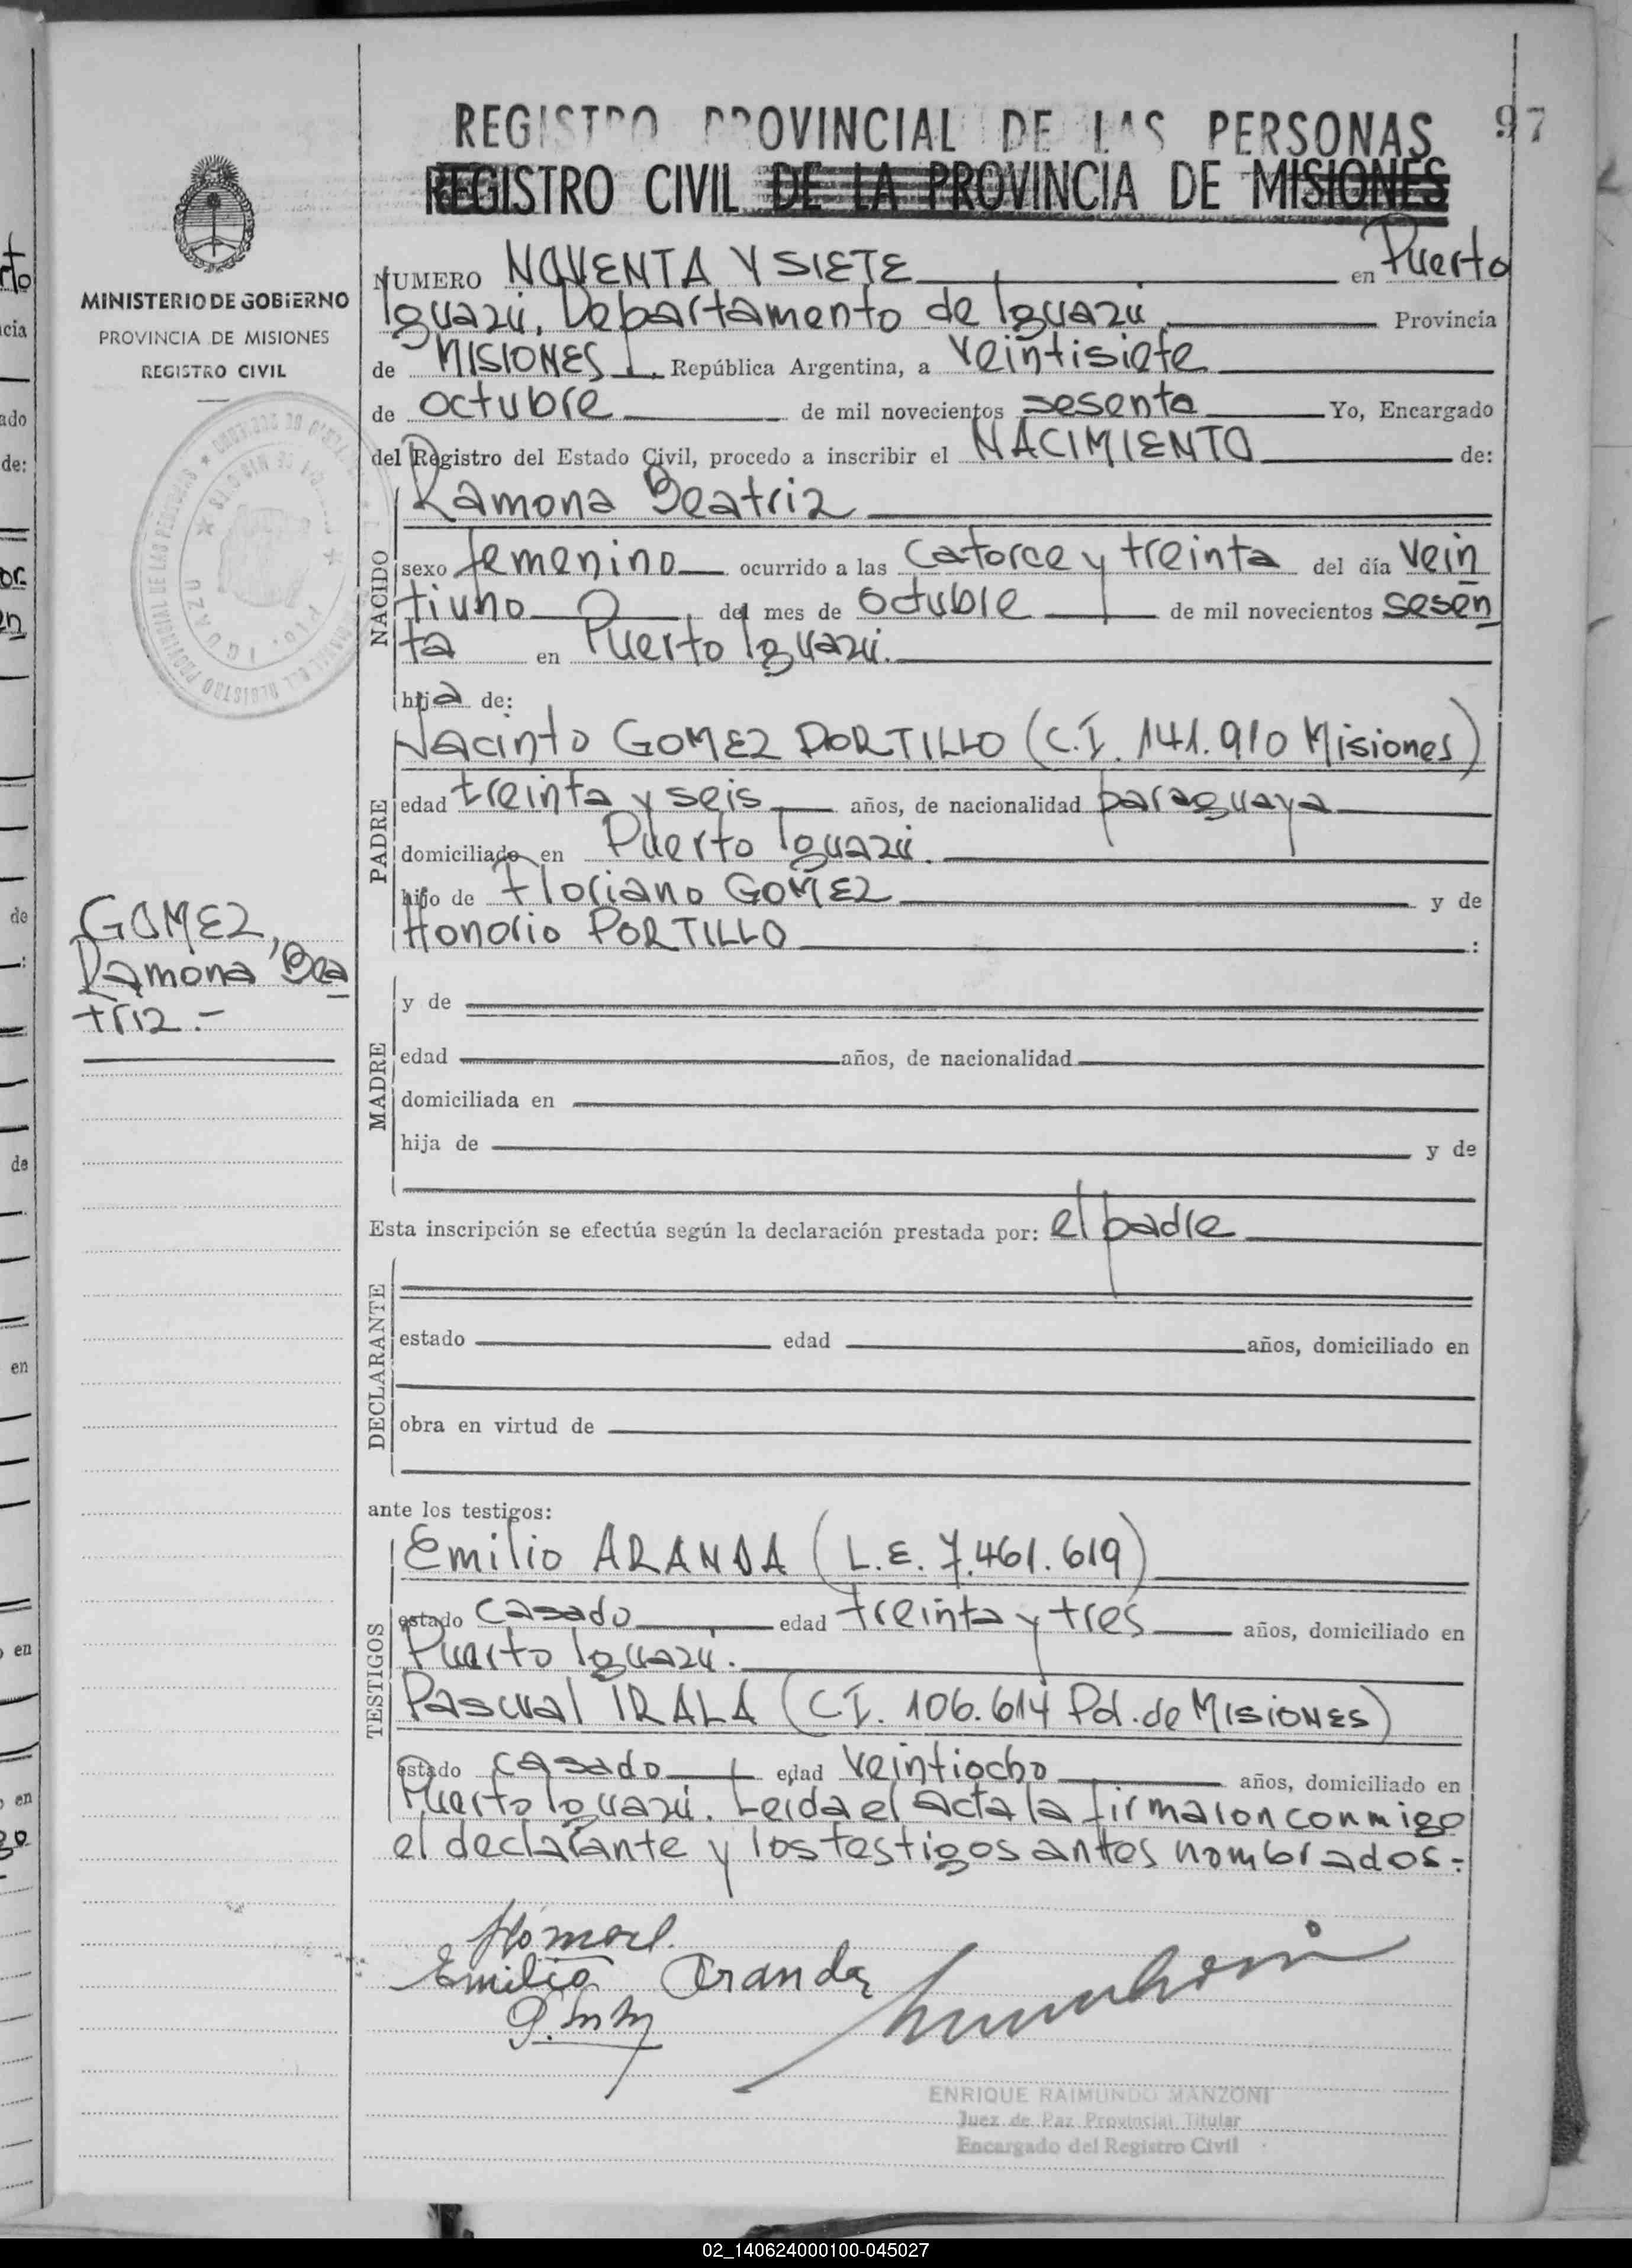 REGISTRO PROVINCIAL DE LAS PERSONAS 97
REGISTRO CIVIL DE LA PROVINCIA DE MISIONES
MINISTERIO DE GOBIERNO
PROVINCIA DE MISIONES
REGISTRO CIVIL
NUMERO NOVENTA Y SIETE en Puerto
Iguazú, Departamento de Iguazú Provincia
de MISIONES, República Argentina, a veintisiete
de octubre de mil novecientos sesenta Yo, Encargado
del Registro del Estado Civil, procedo a inscribir el NACIMIENTO de:
NACIDO
Ramona Beatriz
sexo femenino ocurrido a las catorce y treinta del día vein
tiuno del mes de octubre de mil novecientos sesen
ta en Puerto Iguazú.
hija de:
PADRE
Jacinto GOMEZ PORTILLO (C.I. 141.910 Misiones)
edad treinta y seis años, de nacionalidad paraguaya
domiciliado en Puerto Iguazú.
hijo de Floriano GOMEZ y de
Honorio PORTILLO :
GOMEZ,
Ramona Bea
triz.-
MADRE
y de
edad años, de nacionalidad
domiciliada en
hija de y de
Esta inscripción se efectúa según la declaración prestada por: el padre
DECLARANTE
estado edad años, domiciliado en
obra en virtud de
ante los testigos:
TESTIGOS
Emilio ARANDA (L.E. 7.461.619)
estado casado edad treinta y tres años, domiciliado en
Puerto Iguazú.
Pascual IRALA (C.I. 106.614 Pol. de MISIONES)
estado casado edad veintiocho años, domiciliado en
Puerto Iguazú. Leida el acta la firmaron conmigo
el declarante y los testigos antes nombrados.-
Emilio Aranda
ENRIQUE RAIMUNDO MANZONI
Juez de Paz Provincial Titular
Encargado del Registro Civil
02_140624000100-045027